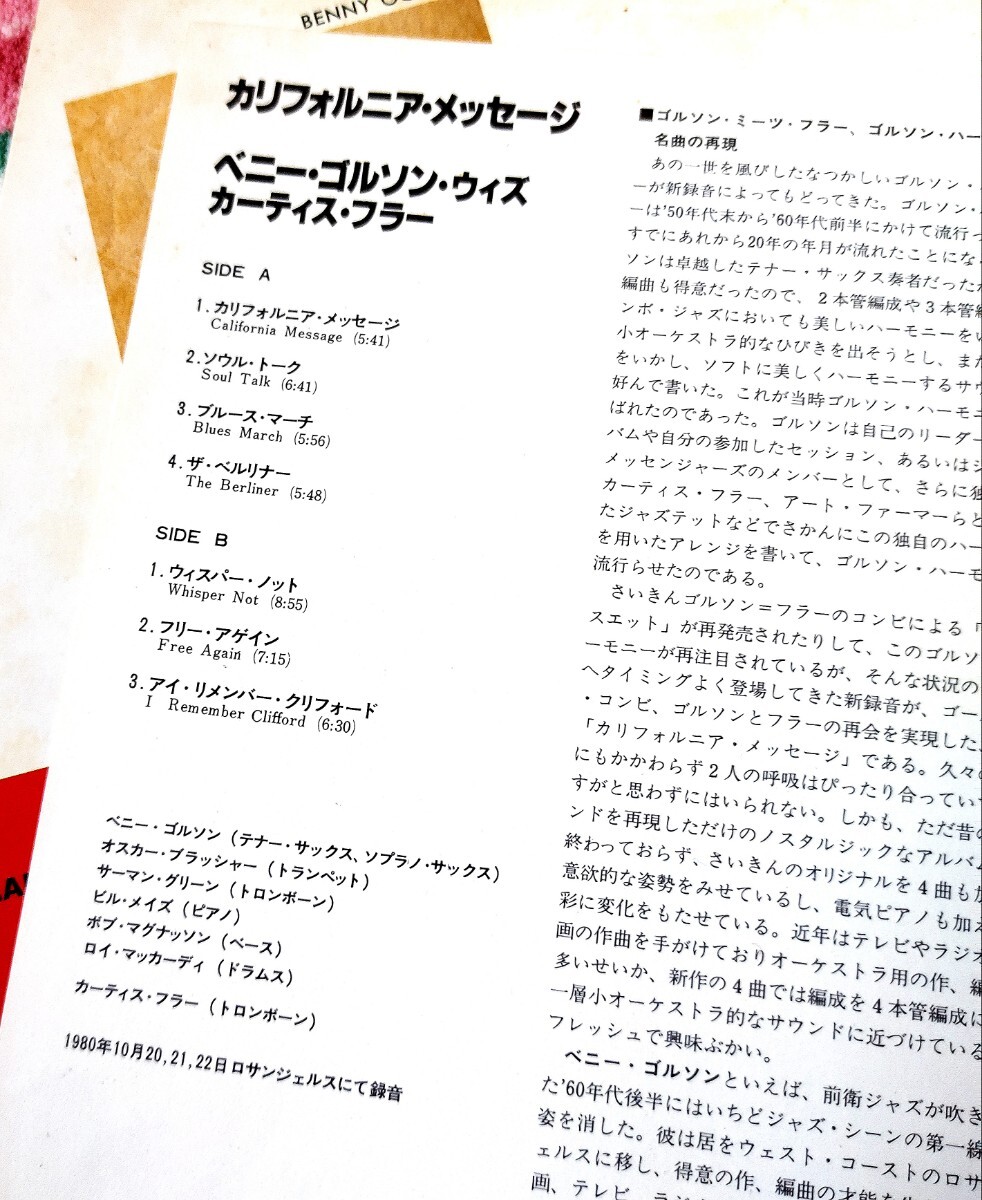 BENNY
カリフォルニア・メッセージ
ベニー・ゴルソン・ウィズ
カーティス・フラー
SIDE A
1. カリフォルニア・メッセージ
California Message (5:41)
2. ソウル・トーク
Soul Talk (6:41)
3. ブルース・マーチ
Blues March (5:56)
4. ザ・ベルリナー
The Berliner (5:48)
SIDE B
1. ウィスパー・ノット
Whisper Not (8:55)
2. フリー・アゲイン
Free Again (7:15)
3. アイ・リメンバー・クリフォード
I Remember Clifford (6:30)
ベニー・ゴルソン (テナー・サックス、ソプラノ・サックス)
オスカー・ブラッシャー (トランペット)
サーマン・グリーン (トロンボーン)
ビル・メイズ (ピアノ)
ボブ・マグナッソン (ベース)
ロイ・マッカーディ (ドラムス)
カーティス・フラー (トロンボーン)
1980年10月20,21,22日ロサンジェルスにて録音
■ゴルソン・ミーツ・フラー、ゴルソン・ハー
名曲の再現
あの一世を風びしたなつかしいゴルソン・
ーが新録音によってもどってきた。ゴルソン・
ーは'50年代末から'60年代前半にかけて流行っ
すでにあれから20年の年月が流れたことにな
ソンは卓越したテナー・サックス奏者だったが
編曲も得意だったので、2本管編成や3本管編
ンボ・ジャズにおいても美しいハーモニーをい
小オーケストラ的なひびきを出そうとし、また
をいかし、ソフトに美しくハーモニーするサウ
好んで書いた。これが当時ゴルソン・ハーモニ
ばれたのであった。ゴルソンは自己のリーダー
バムや自分の参加したセッション、あるいはジ
メッセンジャーズのメンバーとして、さらに独
カーティス・フラー、アート・ファーマーらと
たジャズテットなどでさかんにこの独自のハー
を用いたアレンジを書いて、ゴルソン・ハーモ
流行らせたのである。
さいきんゴルソン=フラーのコンビによる「
スエット」が再発売されたりして、このゴルソ
ーモニーが再注目されているが、そんな状況の
へタイミングよく登場してきた新録音が、ゴー
・コンビ、ゴルソンとフラーの再会を実現した
「カリフォルニア・メッセージ」である。久々の
にもかかわらず2人の呼吸はぴったり合ってい
すがと思わずにはいられない。しかも、ただ昔の
ンドを再現しただけのノスタルジックなアルバム
終わっておらず、さいきんのオリジナルを4曲も
意欲的な姿勢をみせているし、電気ピアノも加え
彩に変化をもたせている。近年はテレビやラジオ
画の作曲を手がけておりオーケストラ用の作、編
多いせいか、新作の4曲では編成を4本管編成に
一層小オーケストラ的なサウンドに近づけている
フレッシュで興味ぶかい。
ベニー・ゴルソンといえば、前衛ジャズが吹き
た'60年代後半にはいちどジャズ・シーンの第一線
姿を消した。彼は居をウェスト・コーストのロサ
ェルスに移し、得意の作、編曲の才能を
画、テレビ、ラジオ